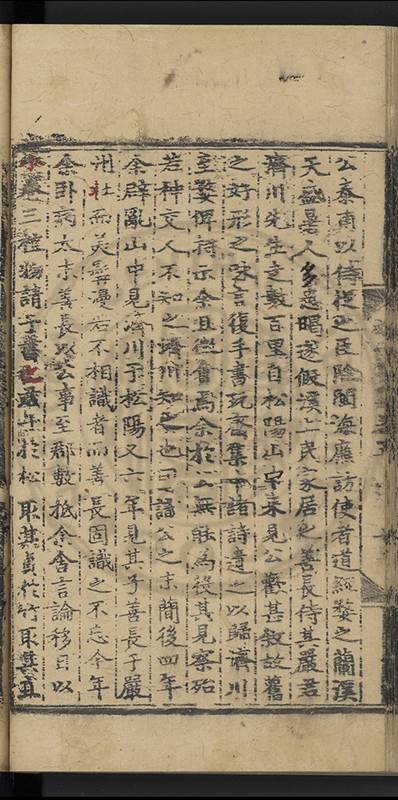 公泰甫以待從之臣除閩海廉訪使者道經婺之蘭溪
天盛暑人多患暍遂假溪上民家居之善長侍其嚴君
濟川先生走數百里自松陽山中來見公歡甚敘故舊
之好形之咏言復手書玩齋集中諸詩遺之以歸濟川
至婺俾持示余且徵會焉余於公無能為役其見察殆
若神交人不知之濟川知之也 公之才 後四年
余辟亂山中見濟川于松陽又六年見其子善長于嚴
州 而美 若不相識者而善長固識之不忘今年
余卧病太末善長以公事至郡數抵余舍言論移日以
三種 請予書之 於松取其 於竹取其直